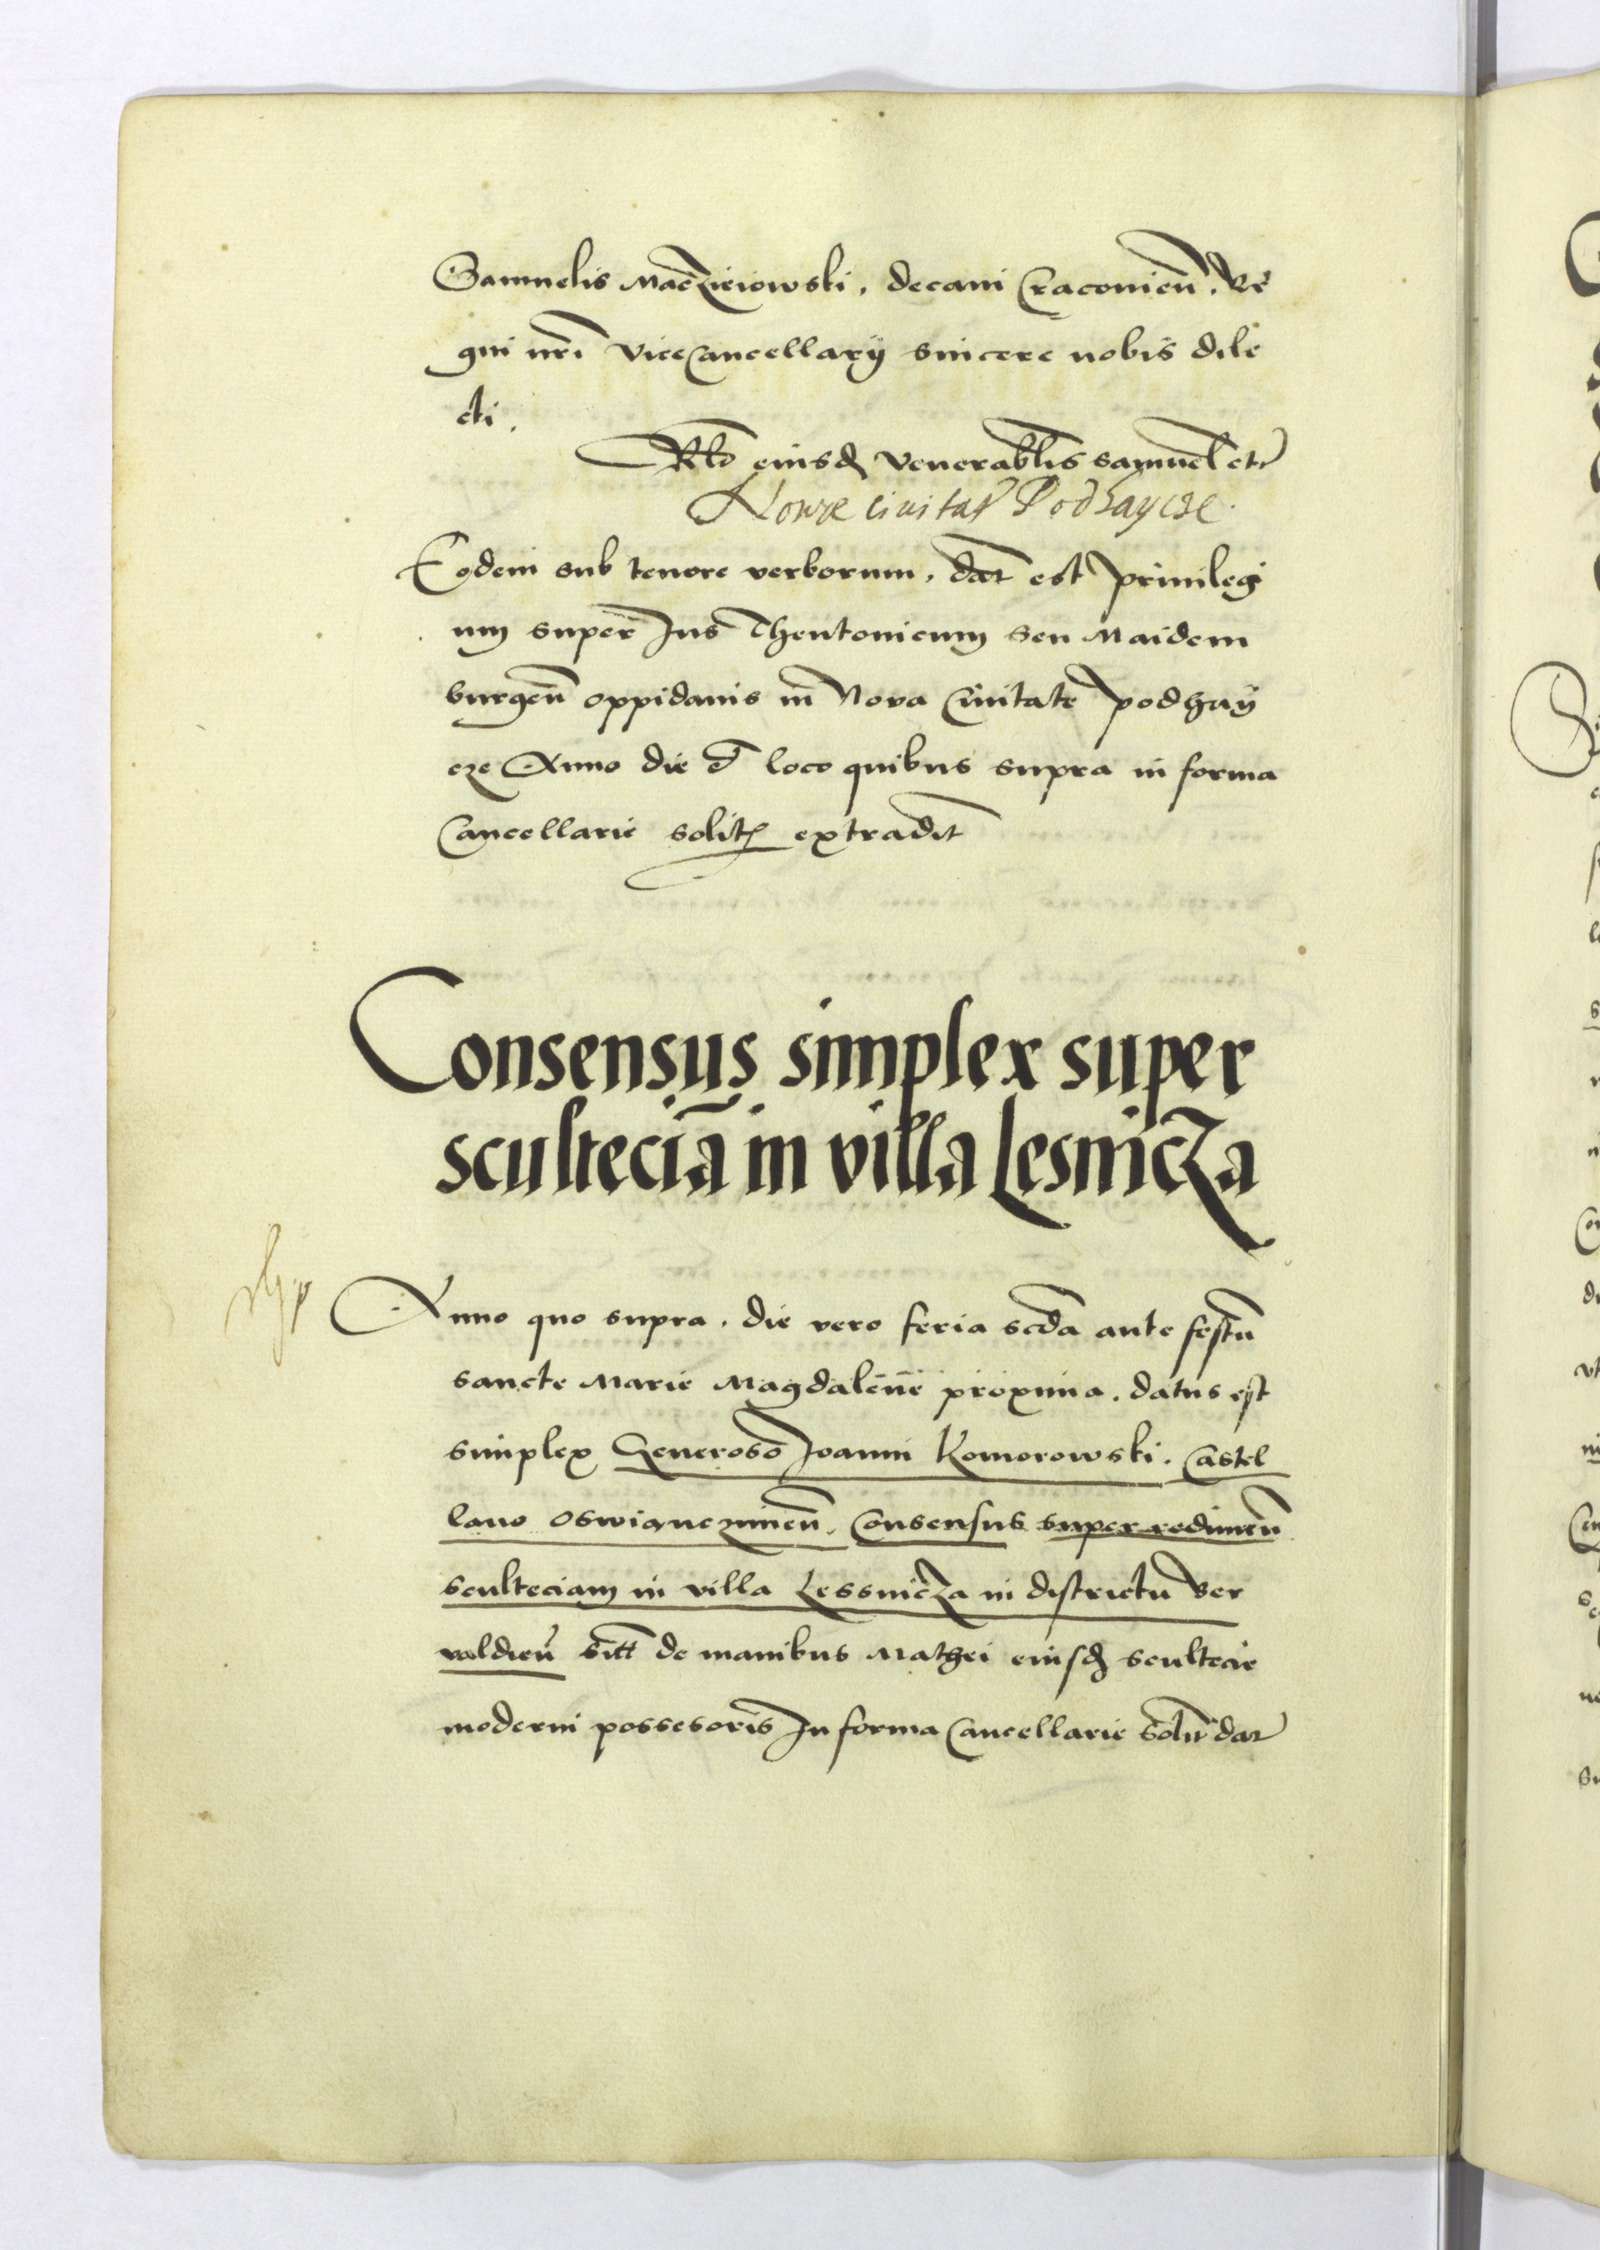 Samuelis Maczieiowski, decani Cracovien̄. Re
gni nr̄i Vicecancellarÿ sincere nobis dile
cti.
Rlō eiusd venerablis Samuel etc
Nowæ civitat Podhaycze.
Eodem sub tenore verborum, dat est privilegi
um super Jus Theutonicum seu Maidem
burgen̄ oppidanis in Nova Civitate podhaÿ
cze Anno die et loco quibus supra in forma
Cancellarie solit extradit
Consensus simplex super
sculteciā in villa Lesnicza
Anno quo supra, die vero feria scda ante festū
sancte Marie Magdalene proxima, datus est
simplex Generoso Joanni Komorowski. Castel
lano Oswianczimen̄. Consensus super redimen̄
sculteciam in villa Lessnicza in districtu Ber
valdien̄ sitt de manibus Mathei eiusd scultecie
moderni possesoris In forma Cancellarie solit dat